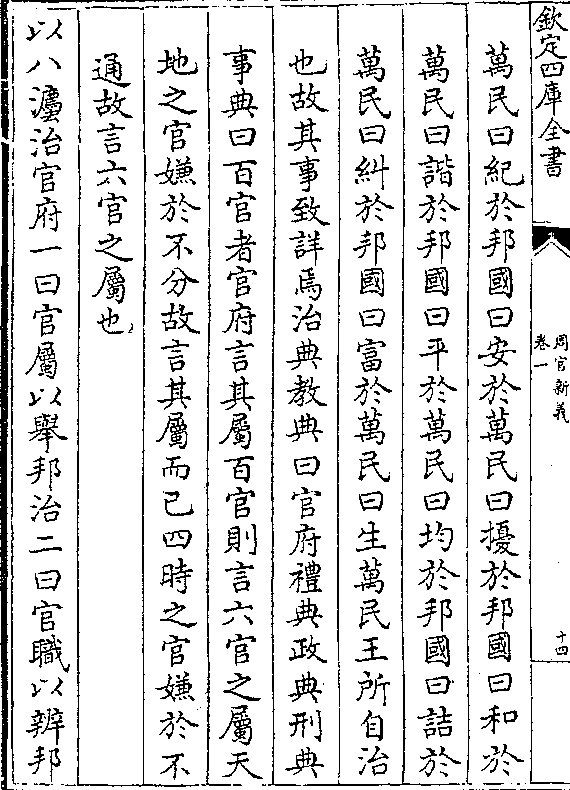 欽定四庫全書
周官新義
卷一
十四
萬民曰紀於邦國曰安於萬民曰擾於邦國曰和於
萬民曰諧於邦國曰平於萬民曰均於邦國曰詰於
萬民曰糾於邦國曰富於萬民曰生萬民王所自治
也故其事致詳焉治典教典曰官府禮典政典刑典
事典曰百官者官府言其屬百官則言六官之屬天
地之官嫌於不分故言其屬而已四時之官嫌於不
通故言六官之屬也
以八灋治官府一曰官屬以舉邦治二曰官職以辨邦